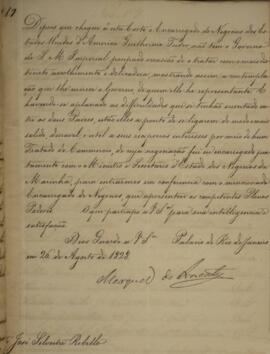 Depois que chegou á esta Corte o Encarregado de Negocios dos Es-
tados Unidos d'America Guilherme Tudor, não tem o Governo
de S. M. Imperial poupado occasião de o tratar com a mais dis-
tincta acolhimento e delicadeza, mostrando assim a contempla-
ção que lhe merece o Governo, de quem elle he representante. E
havendo-se aplanado as difficuldades que se tinhão suscitado en-
tre os dous Paizes, estão elles a ponto de se ligarem de um modo mais
solido, duravel, e util a seus reciprocos interesses por meio de hum
Tratado de Commercio, de cuja negociação fui eu encarregado jun-
tamente com o Ministro e Secretario d'Estado dos Negocios da
Marinha, para entrarmos em conferencia com o mencionado
Encarregado de Negocios, que apresentou os competentes Plenos
Poderes. O que participo a V. S.ª para sua intelligencia e
satisfação.
Deos Guarde a V. S.ª Palacio do Rio de Janeiro
em 26 de Agosto de 1828
Marquez do Aracaty
Jose Silvestre Rebello